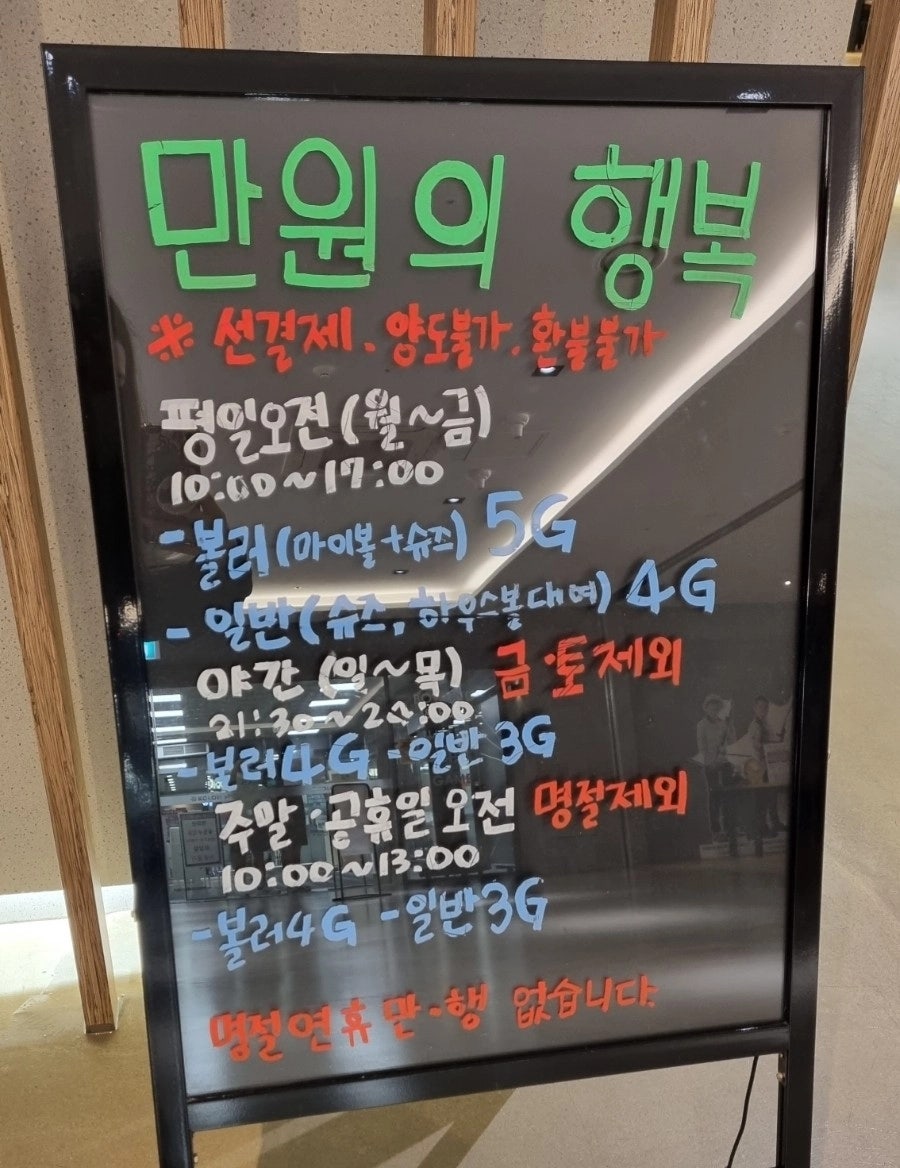 만원의 행복
※ 선결제. 양도불가. 환불불가
평일오전(월~금)
10:00~17:00
- 볼러(마이볼+슈즈) 5G
- 일반(슈즈, 하우스볼대여) 4G
야간 (일~목) 금·토제외
21:30~24:00
- 볼러4G - 일반3G
주말·공휴일 오전 명절제외
10:00~13:00
- 볼러4G - 일반3G
명절연휴 만·행 없습니다.